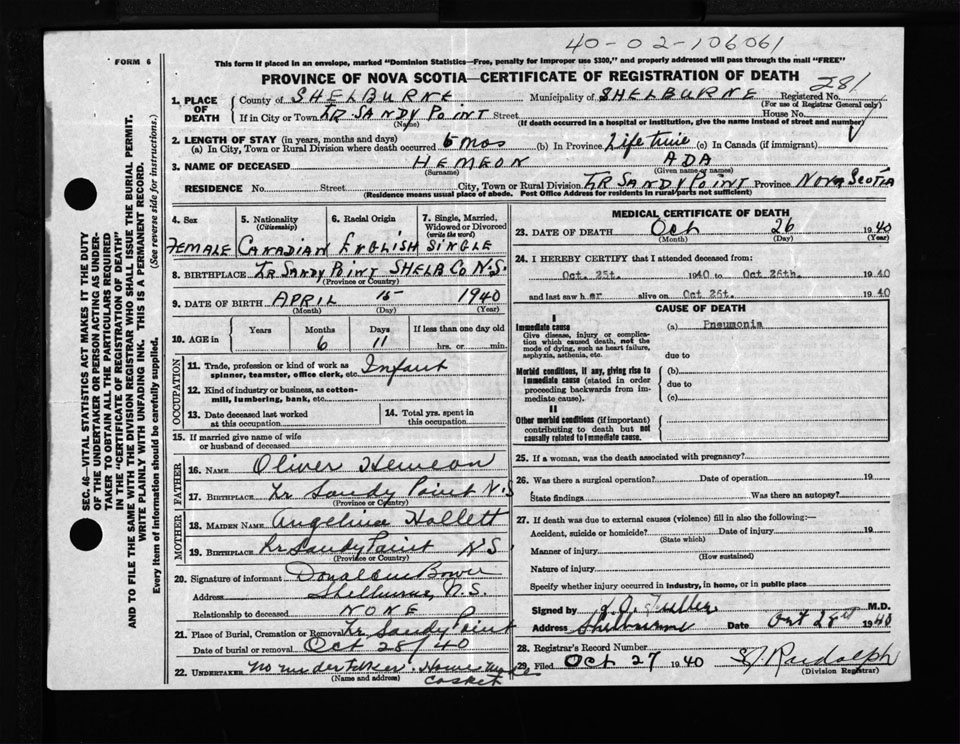 40-02-106061
FORM 6
This form if placed in an envelope, marked "Dominion Statistics—Free, penalty for improper use $300," and properly addressed will pass through the mail "FREE"
PROVINCE OF NOVA SCOTIA—CERTIFICATE OF REGISTRATION OF DEATH
281
SEC. 46—VITAL STATISTICS ACT MAKES IT THE DUTY
OF THE UNDERTAKER OR PERSON ACTING AS UNDER-
TAKER TO OBTAIN ALL THE PARTICULARS REQUIRED
IN THE "CERTIFICATE OF REGISTRATION OF DEATH"
AND TO FILE THE SAME WITH THE DIVISION REGISTRAR WHO SHALL ISSUE THE BURIAL PERMIT.
WRITE PLAINLY WITH UNFADING INK. THIS IS A PERMANENT RECORD.
Every item of information should be carefully supplied. (See reverse side for instructions.)
1. PLACE OF DEATH County of SHELBURNE Municipality of SHELBURNE Registered No.
(For use of Registrar General only)
If in City or Town LR SANDY POINT Street House No.
(Name) (If death occurred in a hospital or institution, give the name instead of street and number)
2. LENGTH OF STAY (in years, months and days)
(a) In City, Town or Rural Division where death occurred 6 mos (b) In Province Life time (c) In Canada (if immigrant)
3. NAME OF DECEASED HEMEON ADA
(Surname) (Given name or names)
RESIDENCE No. Street City, Town or Rural Division LR SANDY POINT Province NOVA SCOTIA
(Residence means usual place of abode. Post Office Address for residents in rural parts not sufficient)
4. Sex 5. Nationality (Citizenship) 6. Racial Origin 7. Single, Married, Widowed or Divorced (write the word)
FEMALE CANADIAN ENGLISH SINGLE
8. BIRTHPLACE LR SANDY POINT SHELB CO N.S.
(Province or Country)
9. DATE OF BIRTH APRIL 15 1940
(Month) (Day) (Year)
10. AGE in Years Months Days If less than one day old
6 11 hrs. or min.
OCCUPATION
11. Trade, profession or kind of work as spinner, teamster, office clerk, etc. Infant
12. Kind of industry or business, as cotton-mill, lumbering, bank, etc.
13. Date deceased last worked at this occupation
14. Total yrs. spent in this occupation
15. If married give name of wife or husband of deceased
FATHER
16. NAME Oliver Hemeon
17. BIRTHPLACE Lr Sandy Point N.S
(Province or Country)
MOTHER
18. MAIDEN NAME Angelina Hallett
19. BIRTHPLACE Lr Sandy Point N S
(Province or Country)
20. Signature of informant Bower
Address Shelburne, N.S.
Relationship to deceased NONE
21. Place of Burial, Cremation or Removal Lr Sandy Point
Date of burial or removal Oct 28/40
22. UNDERTAKER no undertaker. Home made casket
(Name and address)
MEDICAL CERTIFICATE OF DEATH
23. DATE OF DEATH Oct 26 1940
(Month) (Day) (Year)
24. I HEREBY CERTIFY that I attended deceased from:
Oct. 25t. 1940 to Oct 26th. 1940
and last saw her alive on Oct 26t. 1940
CAUSE OF DEATH
I
Immediate cause (a) Pneumonia
Give disease, injury or complication which caused death, not the mode of dying, such as heart failure, asphyxia, asthenia, etc.
due to
Morbid conditions, if any, giving rise to immediate cause (stated in order proceeding backwards from immediate cause).
(b)
due to
(c)
II
Other morbid conditions (if important) contributing to death but not causally related to immediate cause.
25. If a woman, was the death associated with pregnancy?
26. Was there a surgical operation? Date of operation 19
State findings Was there an autopsy?
27. If death was due to external causes (violence) fill in also the following:—
Accident, suicide or homicide? Date of injury 19
(State which)
Manner of injury
(How sustained)
Nature of injury
Specify whether injury occurred in industry, in home, or in public place
Signed by M.D.
Address Shelburne Date Oct 28 1940
28. Registrar's Record Number
29. Filed Oct 27 1940 Randolph
(Division Registrar)